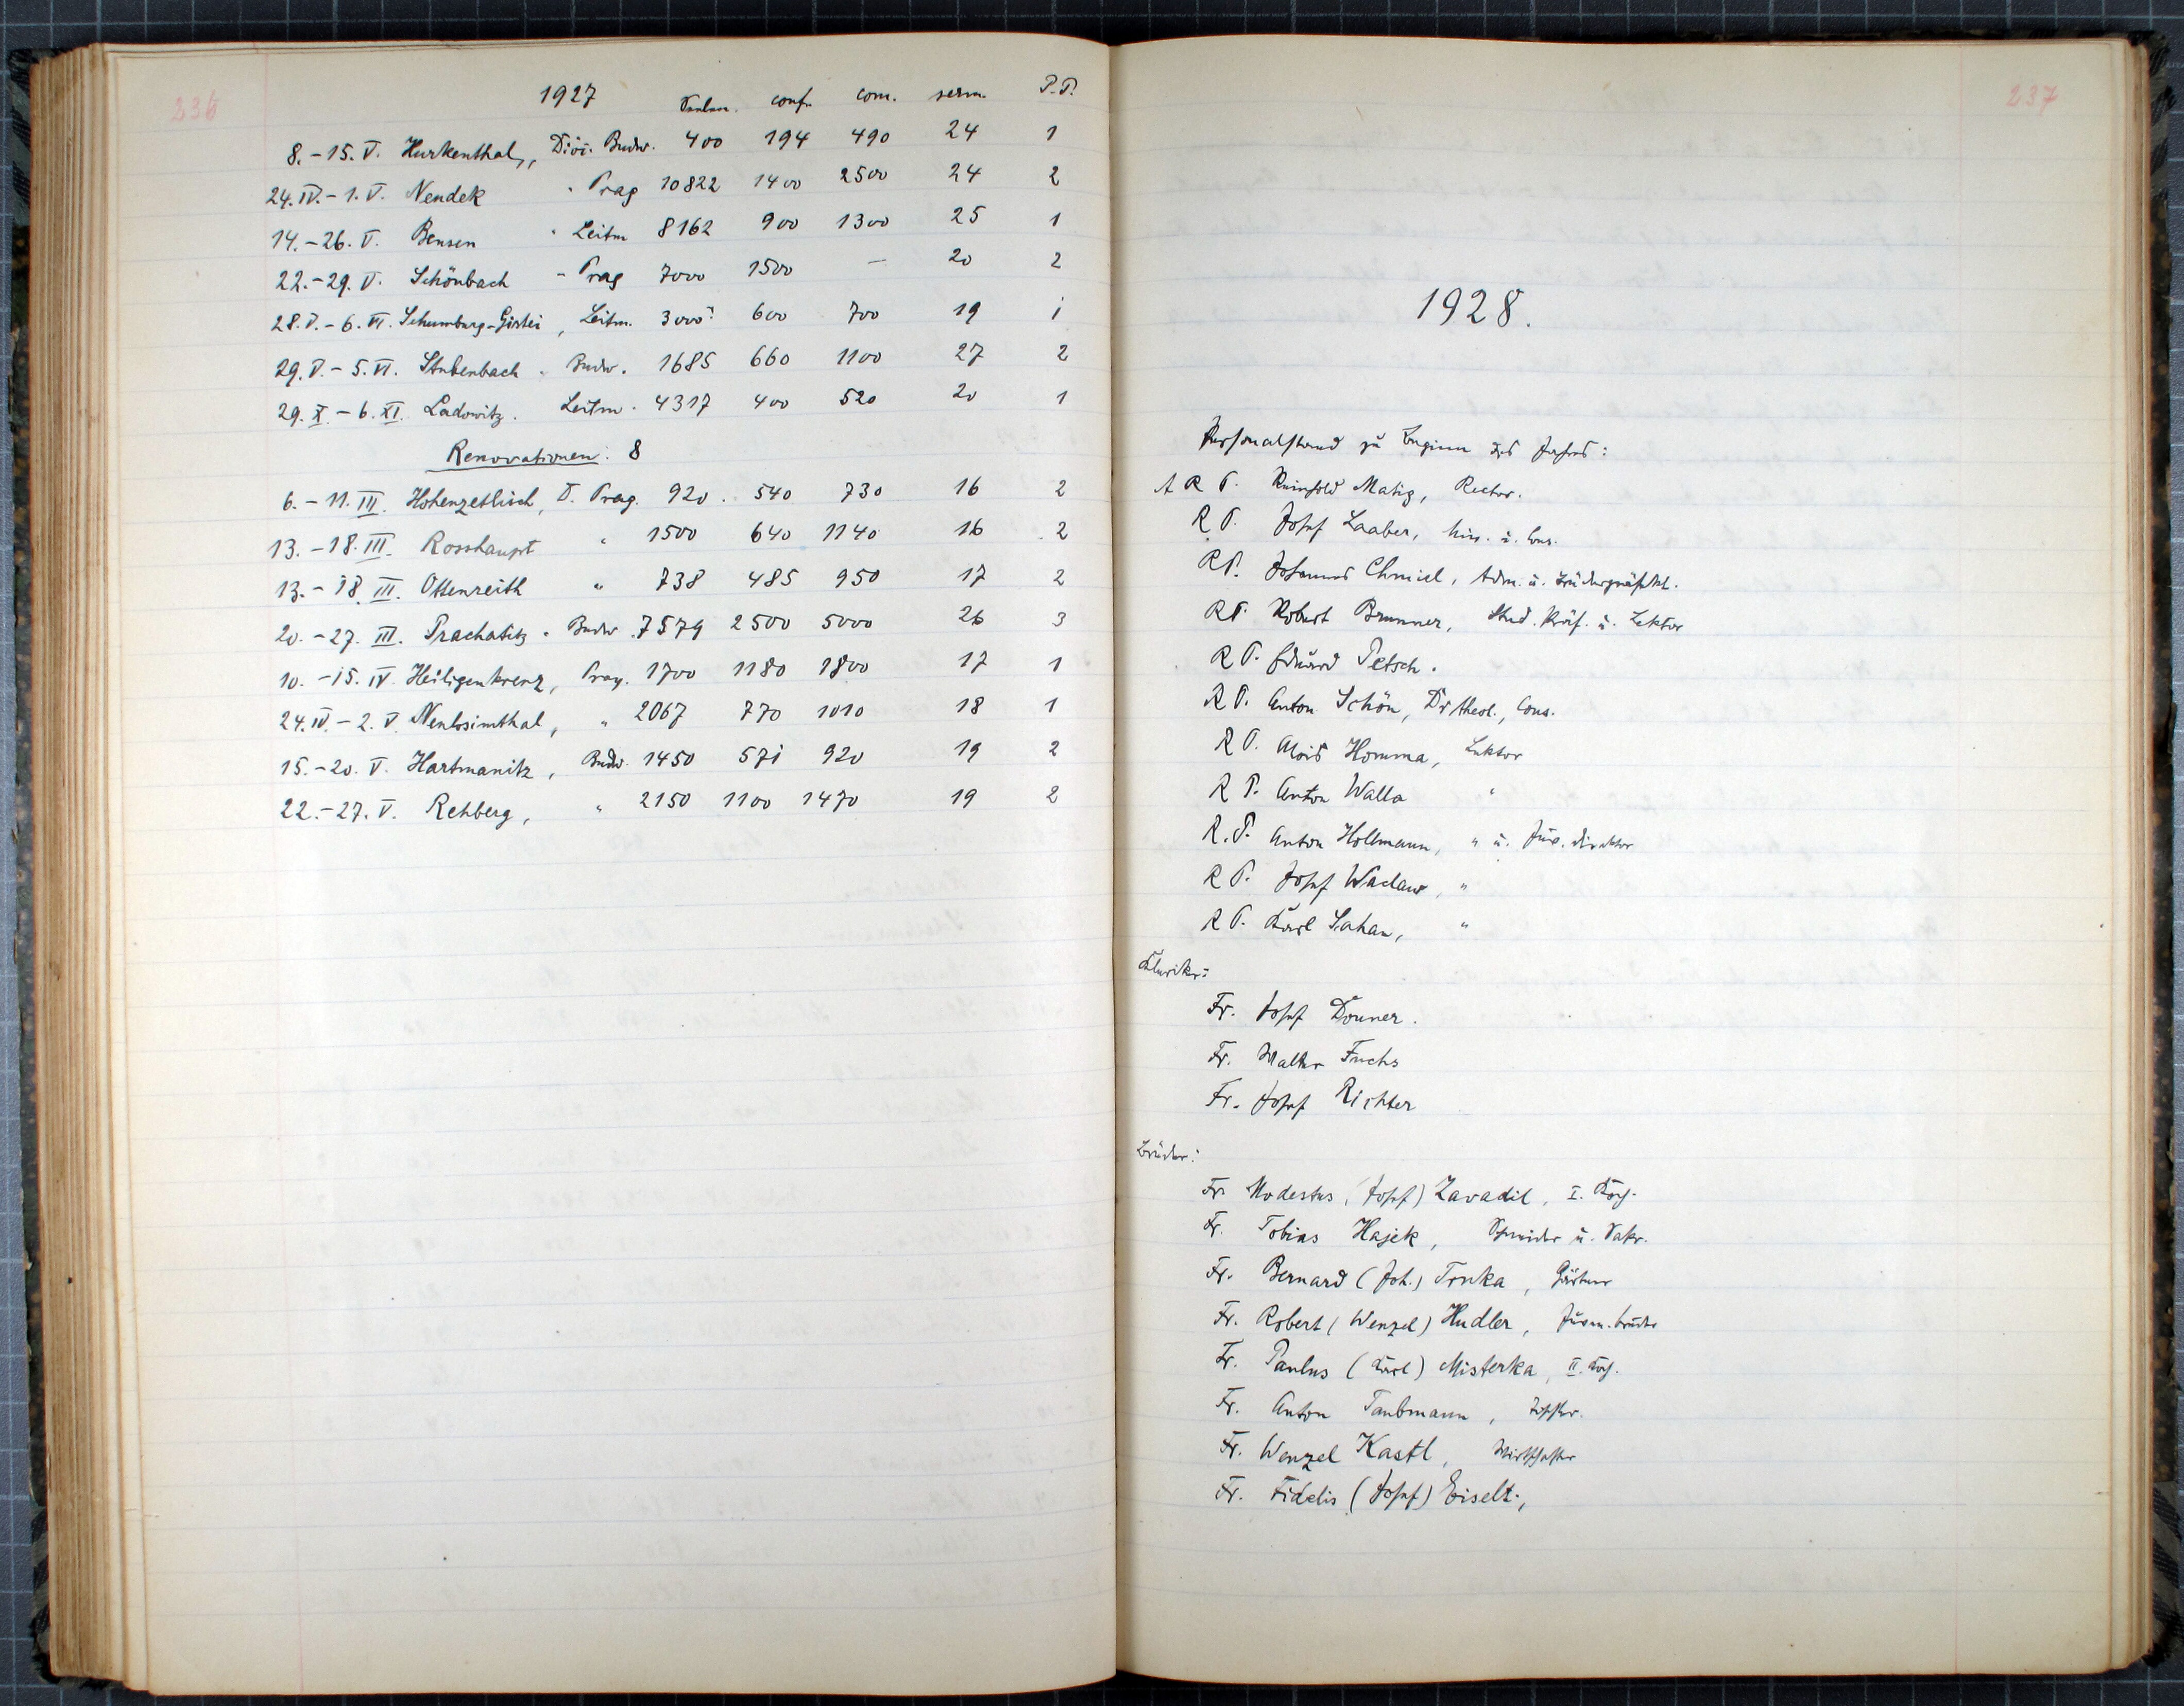 236
1927 Seelen. conf. com. serm. P.P.
8.-15. V. Hurkenthal, Diöz. Budw. 400 194 490 24 1
24. IV. - 1. V. Neudek " Prag 10822 1400 2500 24 2
14. - 26. V. Bensen " Leitm 8162 900 1300 25 1
22. - 29. V. Schönbach " Prag 7000 1500 — 20 2
28. V. - 6. VI. Schumburg-Gistei, Leitm. 3000? 600 700 19 1
29. V. - 5. VI. Stubenbach " Budw. 1685 660 1100 27 2
29. X. - 6. XI. Ladowitz. Leitm. 4317 400 520 20 1
Renovationen: 8
6. - 11. III. Hohenzetlisch, D. Prag. 920. 540 730 16 2
13. - 18. III. Rosshaupt " 1500 640 1140 16 2
13. - 18. III. Ottenreith " 738 485 950 17 2
20. - 27. III. Prachatitz " Budw. 7579 2500 5000 26 3
10. - 15. IV. Heiligenkreuz, Prag. 1700 1180 1800 17 1
24. IV. - 2. V. Neulosimthal, " 2067 770 1010 18 1
15. - 20. V. Hartmanitz, Budw. 1450 571 920 19 2
22. - 27. V. Rehberg, " 2150 1100 1470 19 2
237
1928.
Personalstand zu Beginn des Jahres:
A R P. Reinhold Matig, Rector.
R P. Josef Laaber, Min. u. Cons.
R P. Johannes Chmiel, Adm. u. Brüderpräfekt.
R P. Robert Brunner, Stud. Präf. u. Lektor
R P. Eduard Petsch.
R P. Anton Schön, Dr theol., Cons.
R P. Alois Homma, Lektor
R P. Anton Walla "
R. P. Anton Hollmann, " u. Juv. direktor
R P. Josef Waclaw, "
R P. Karl Sahan, "
Kleriker:
Fr. Josef Donner.
Fr. Walter Fuchs
Fr. Josef Richter
Brüder:
Fr. Modestus (Josef) Zavadil, I. Koch.
Fr. Tobias Hajek, Schneider u. Sakr.
Fr. Bernard (Joh.) Trnka, Gärtner
Fr. Robert (Wenzel) Hudler, Juven. bruder
Fr. Paulus (Karl) Misterka, II. Koch.
Fr. Anton Taubmann,
Fr. Wenzel Kastl, Wirtschafter
Fr. Fidelis (Josef) Eiselt.,